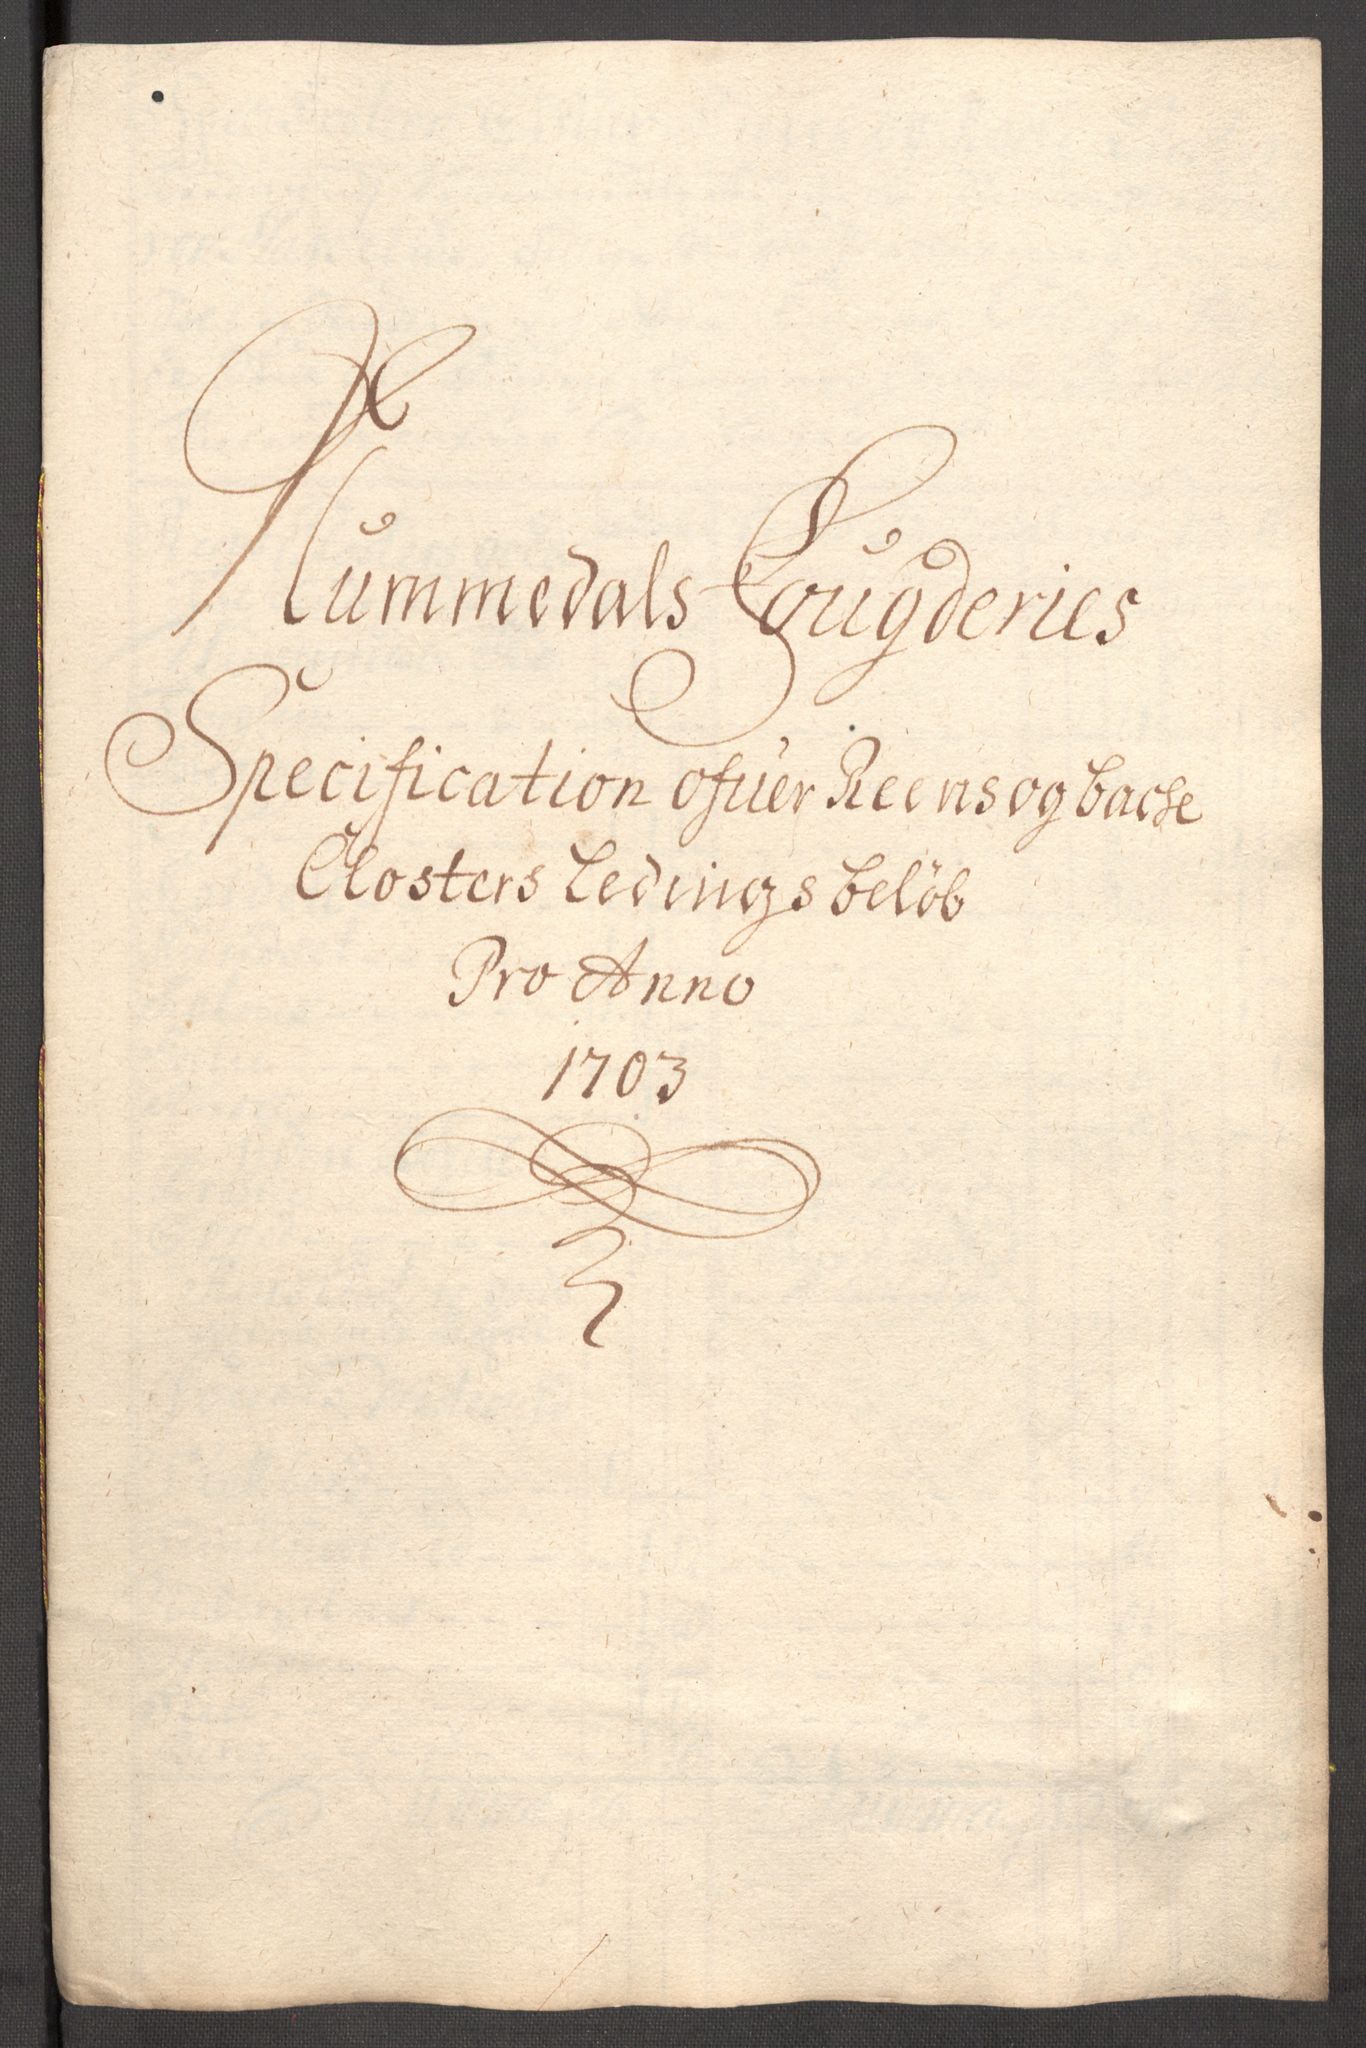 Nummedals Fougderies
Specification ofuer Reens og backe
Closters Ledings belöb
Pro Anno
1703